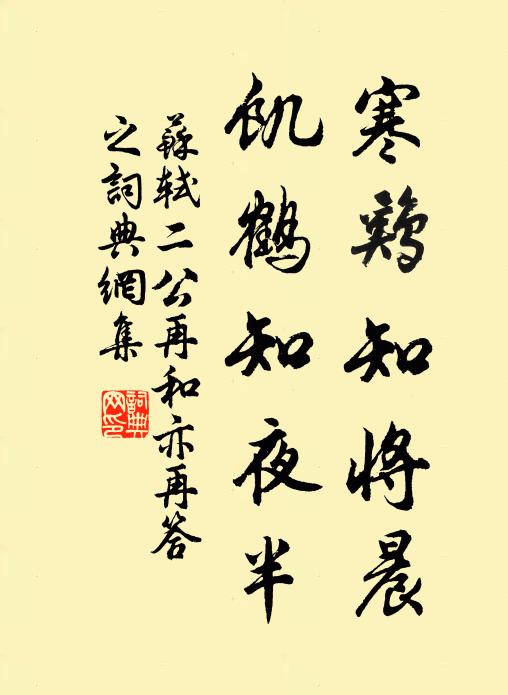 寒鷄知將晨
飢鶴知夜半
蘇軾二公再和亦再答
之詞典網集
詞典
网印